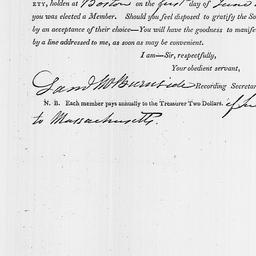 ETY, holden at Boston on the first day of June
you was elected a Member. Should you feel disposed to gratify the So
by an acceptance of their choice—You will have the goodness to manifes
by a line addressed to me, as soon as may be convenient.
I am—Sir, respectfully,
Your obedient servant,
Saml M Burnside Recording Secretar
N. B. Each member pays annually to the Treasurer Two Dollars. if
to Massachusetts.